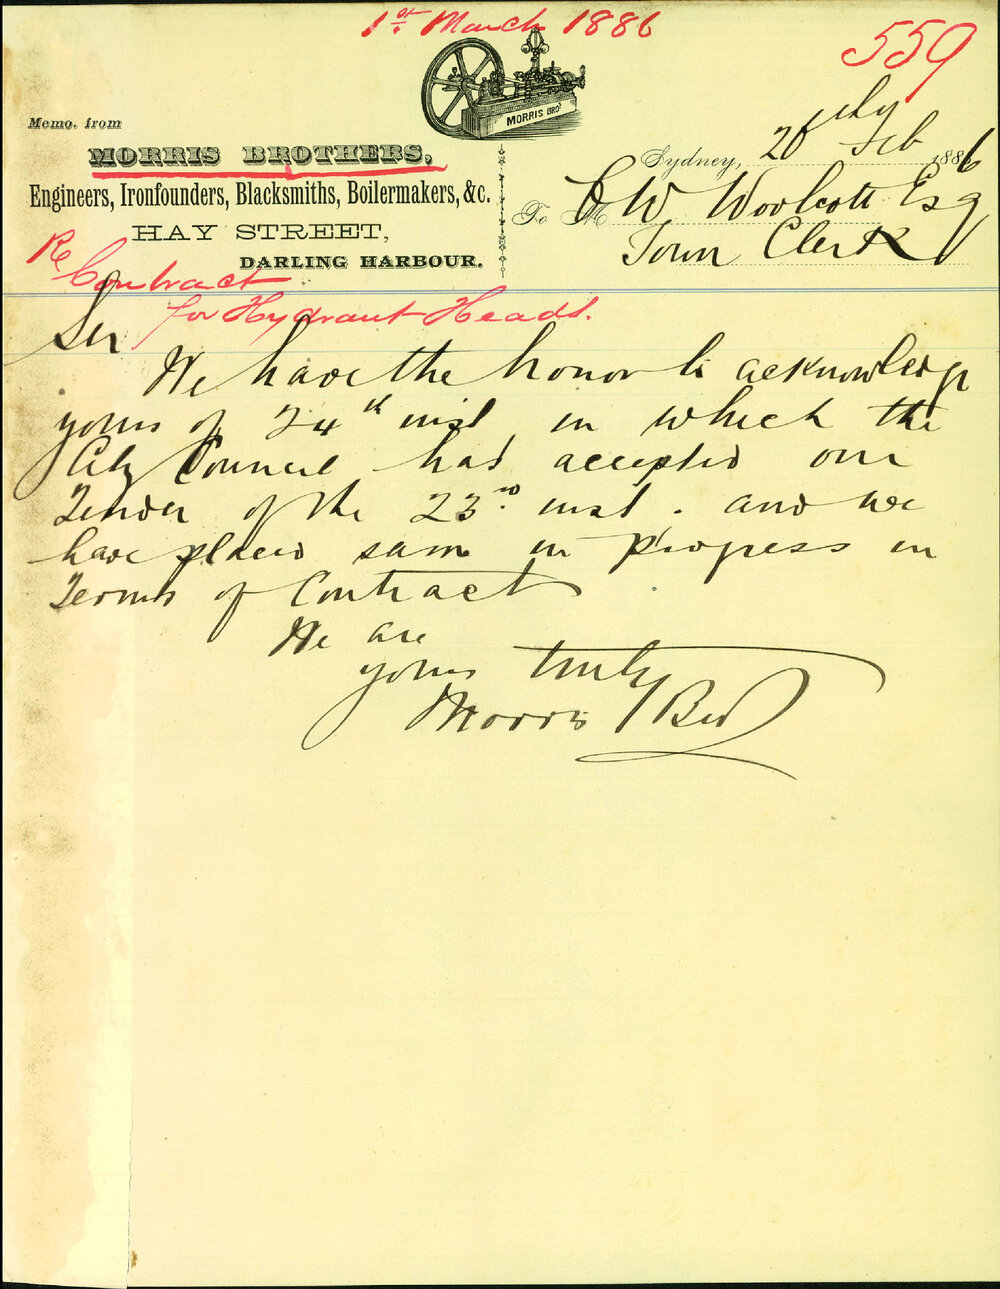 1st March 1886
559
MORRIS BROS
Memo. from
MORRIS BROTHERS,
Engineers, Ironfounders, Blacksmiths, Boilermakers, &c.
HAY STREET,
DARLING HARBOUR.
Sydney, Feb 1886
To M C W Woolcott Esq
Town Clerk
Re Contract
for Hydrant Heads.
Sir
We have the honor to acknowledge
yours of 24th inst in which the
City Council had accepted our
Tender of the 23rd inst. and we
have placed same in progress in
Terms of Contract
We are
yours truly
Morris Bros